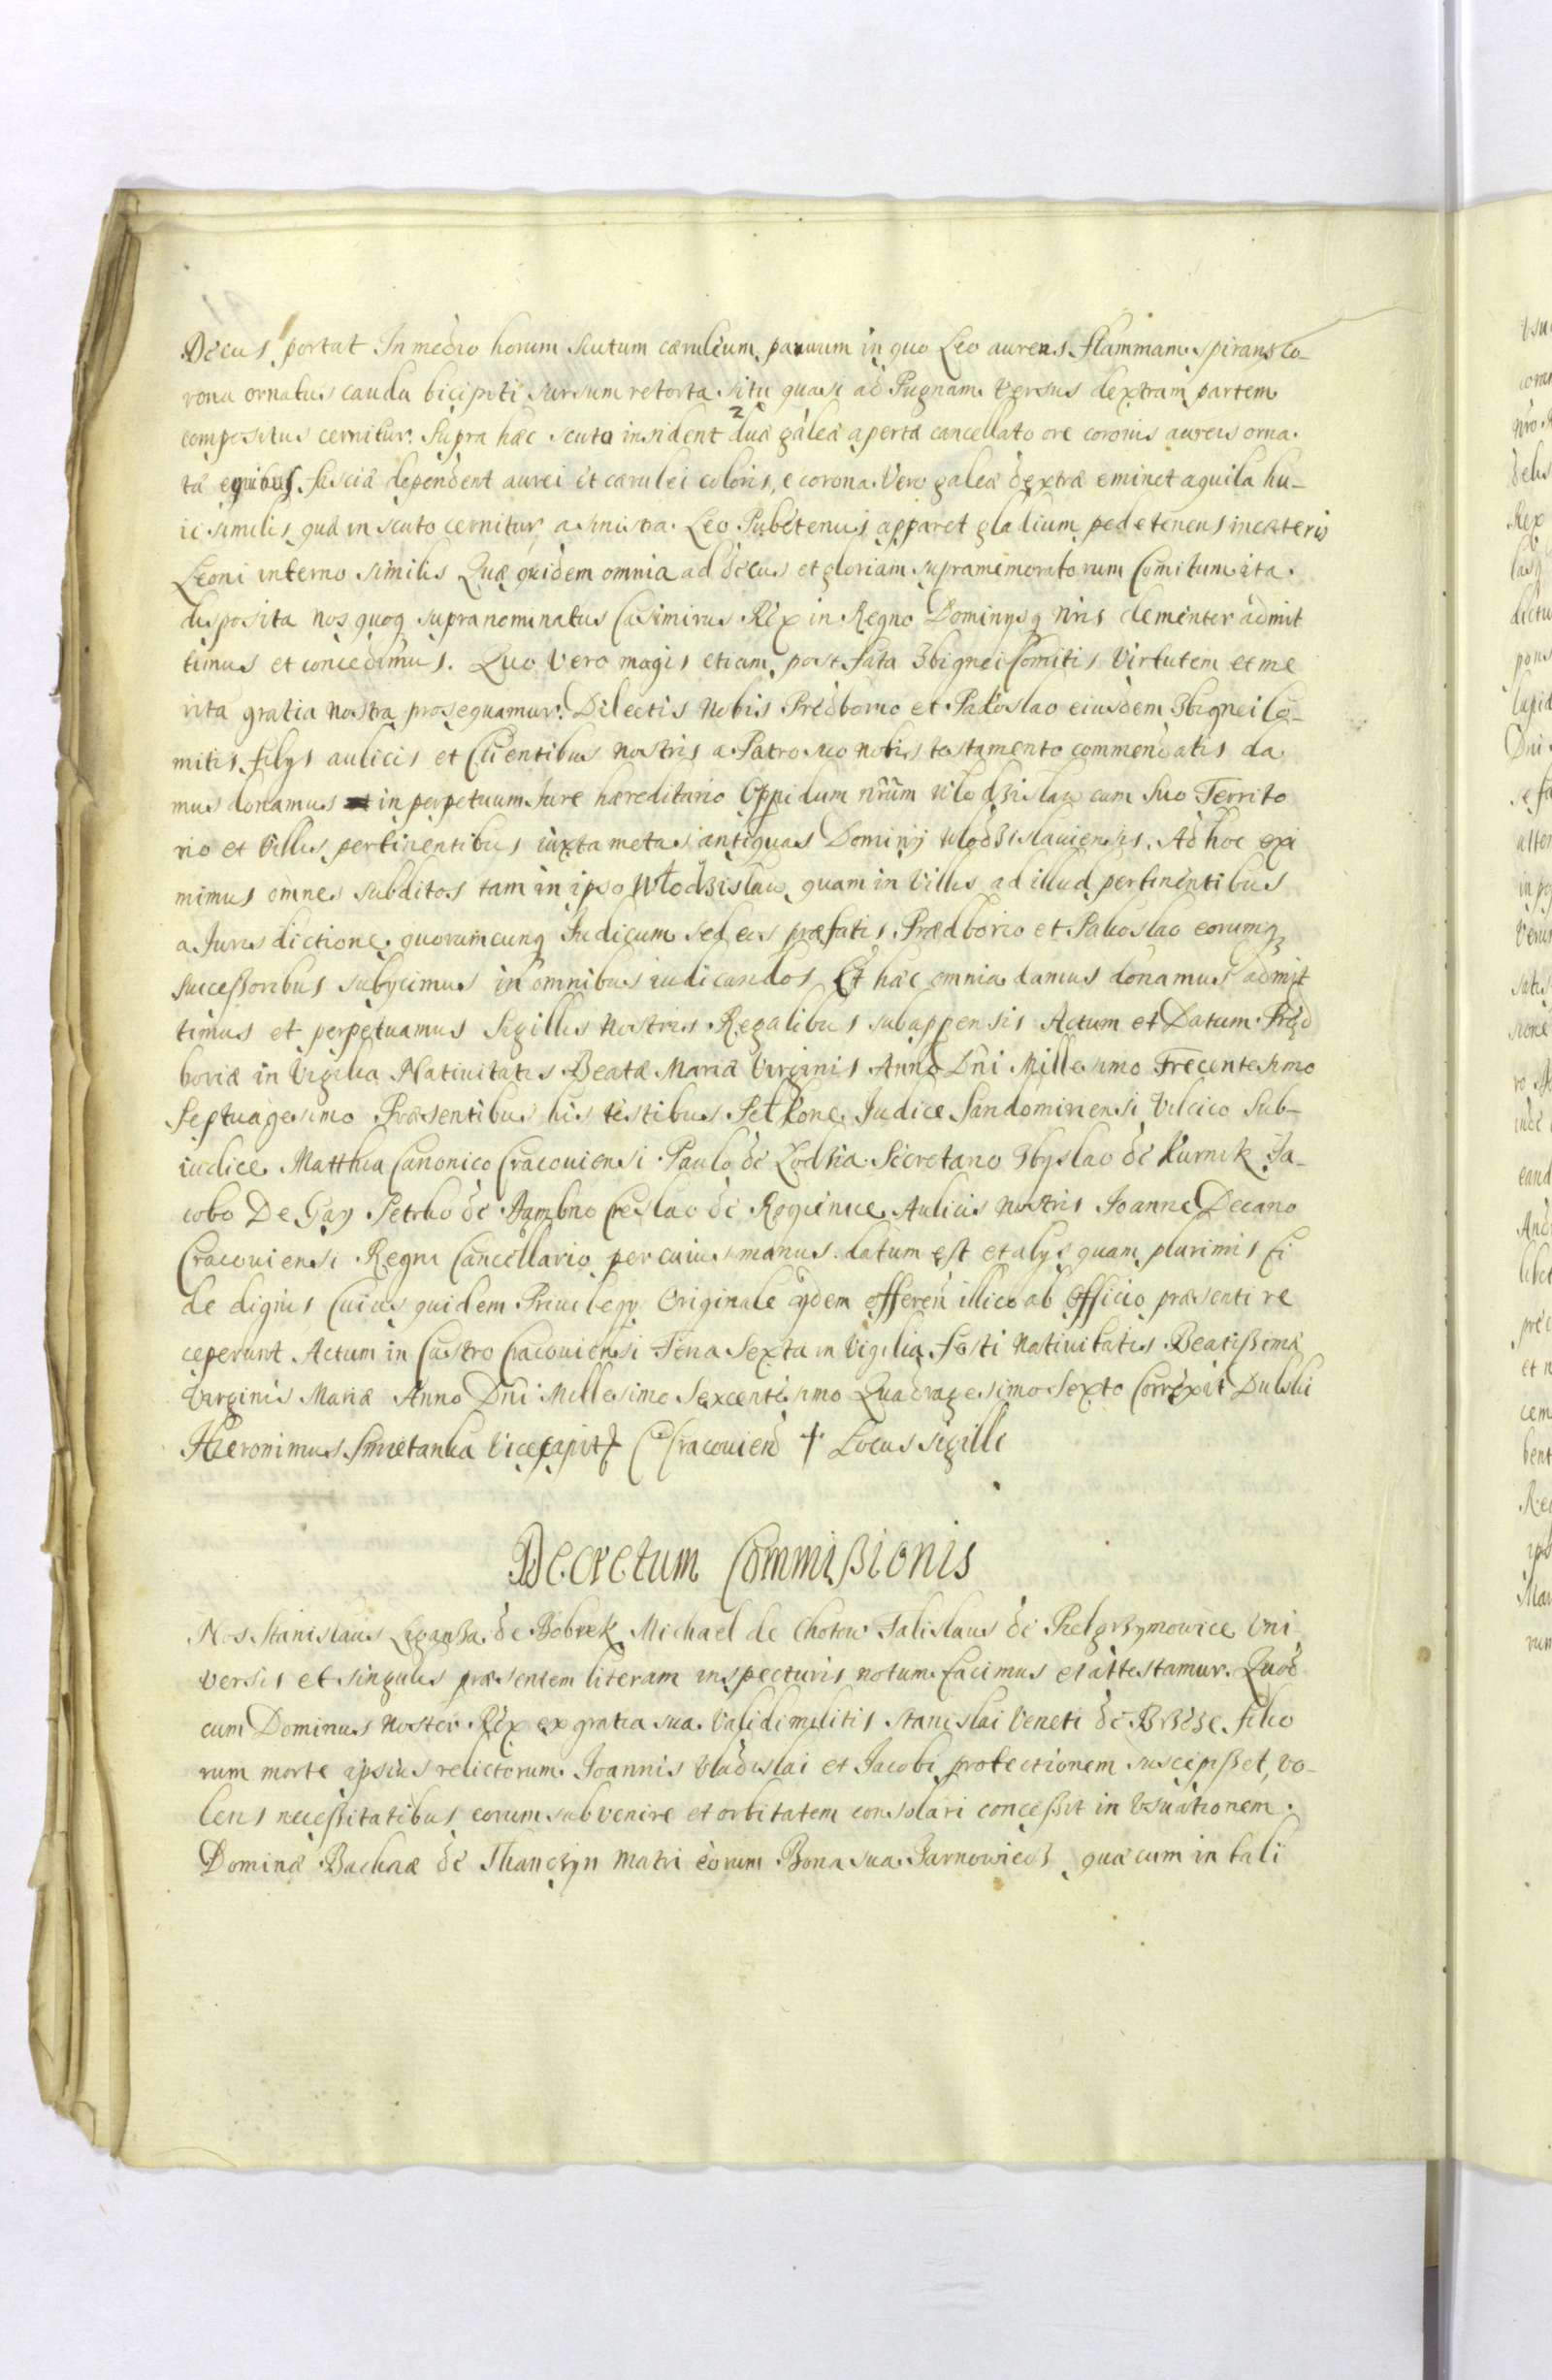 Decus portat In medio horum scutum cæruleum paruum in quo Leo aureus flammam spirans co_
rona ornatus cauda bicipiti sursum retorta situ quasi ad Pugnam versus dextram partem
compositus cernitur. Supra hæc scuta insident 2 duæ galeæ apertæ cancellato ore coronis aureis orna.
tæ e quibus fasciæ dependent aurei et cærulei coloris, e corona vero galeæ dextræ eminet aquila hu_
ic similis quæ in scuto cernitur a sinistra Leo Pubetenus apparet gladium pede tenens in cæteris
Leoni interno similis Quæ quidem omnia ad decus et gloriam supramemoratorum Comitum ita
disposita nos quoq supranominatus Casimirus Rex in Regno Dominysq nris clementer admit
timus et concedimus. Quo vero magis etiam post fata Zbignei Comitis virtutem et me
rita gratia nostra prosequamur. Dilectis nobis Predborio et Pakoslao eiusdem Zbignei Co_
mitis filys aulicis et Clientibus nostris a Patro suo nobis testamento commendatis da
mus donamus in perpetuum Jure hæreditario Oppidum nrum Wlodzislaw cum suo Territo
rio et villis pertinentibus iuxta metas antiquas Dominij Wlodzislauiensis. Ad hoc exi
mimus omnes subditos tam in ipso Włodzislaw quam in villis ad illud pertinentibus
a Jurisdictione quorumcunq Judicum sed eos præfatis Prædborio et Pakoslao eorumq
successoribus subycimus in omnibus iudicandos Et hæc omnia damus donamus admit
timus et perpetuamus Sigillis nostris Regalibus subappensis Actum et Datum Præd
boriæ in Vigilia Natiuitatis Beatæ Mariæ Virginis Anno Dni Millesimo Trecentesimo
Septuagesimo Præsentibus his testibus Petkone Judice Sandomiriensi Vilcico Sub_
iudice Matthia Canonico Cracouiensi Paulo de Lodzia Secretario Zbyslao de Kurnik Ja_
cobo De Gay Petrko de Jambno Creslao de Rogienice Aulicis nostris Joanne Decano
Cracouiensi Regni Cancellario per cuius manus datum est et alys quam plurimis fi
de dignis Cuius quidem Priuilegy Originale ydem offeren illico ab Officio præsenti re
ceperunt Actum in Castro Cracouiensi Feria Sexta in Vigilia Festi Natiuitatis Beatißimæ
Virginis Mariæ Anno Dni Millesimo Sexcentesimo Quadragesimo Sexto Correxit Dulski
Hieronimus Smietanka Vicecapit C Cracouien † Locus sigilli
Decretum Commißionis
Nos Stanislaus Liganza de Bobrek Michael de Chotow Falislaus de Pielgrzymowice Uni
versis et singulis præsentem literam inspecturis notum facimus et attestamur. Quod
cum Dominus noster Rex ex gratia sua validi militis Stanislai Veneti de Brzezie filio
rum morte ipsius relictorum Joannis Vladislai et Jacobi protectionem suscepißet, vo_
lens neceßitatibus eorum subvenire et orbitatem consolari conceßit in
Dominæ Bachnæ de Thanczyn matri eorum Bona sua quæ cum in tali